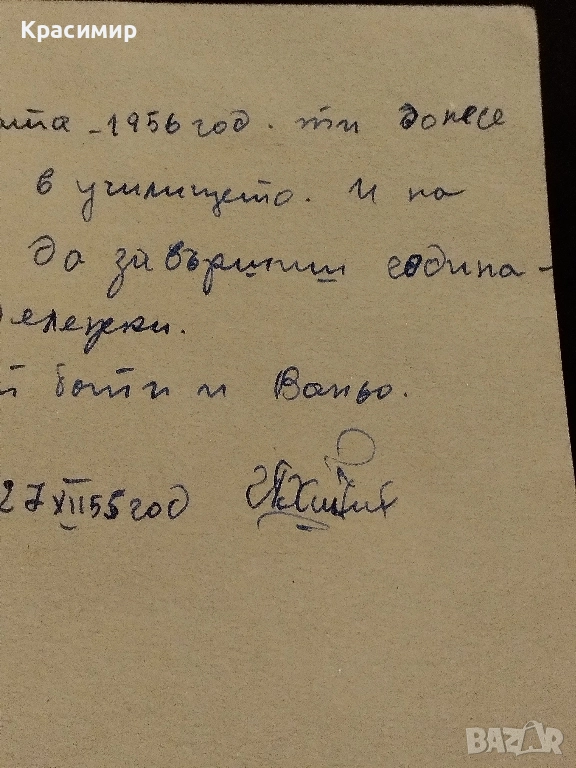 Красимир
ота - 1956 год. ти донесе
в училището. И на
да завършиш година-
бележки.
бати и Ваньо.
27 XII 55 год
BAZAR